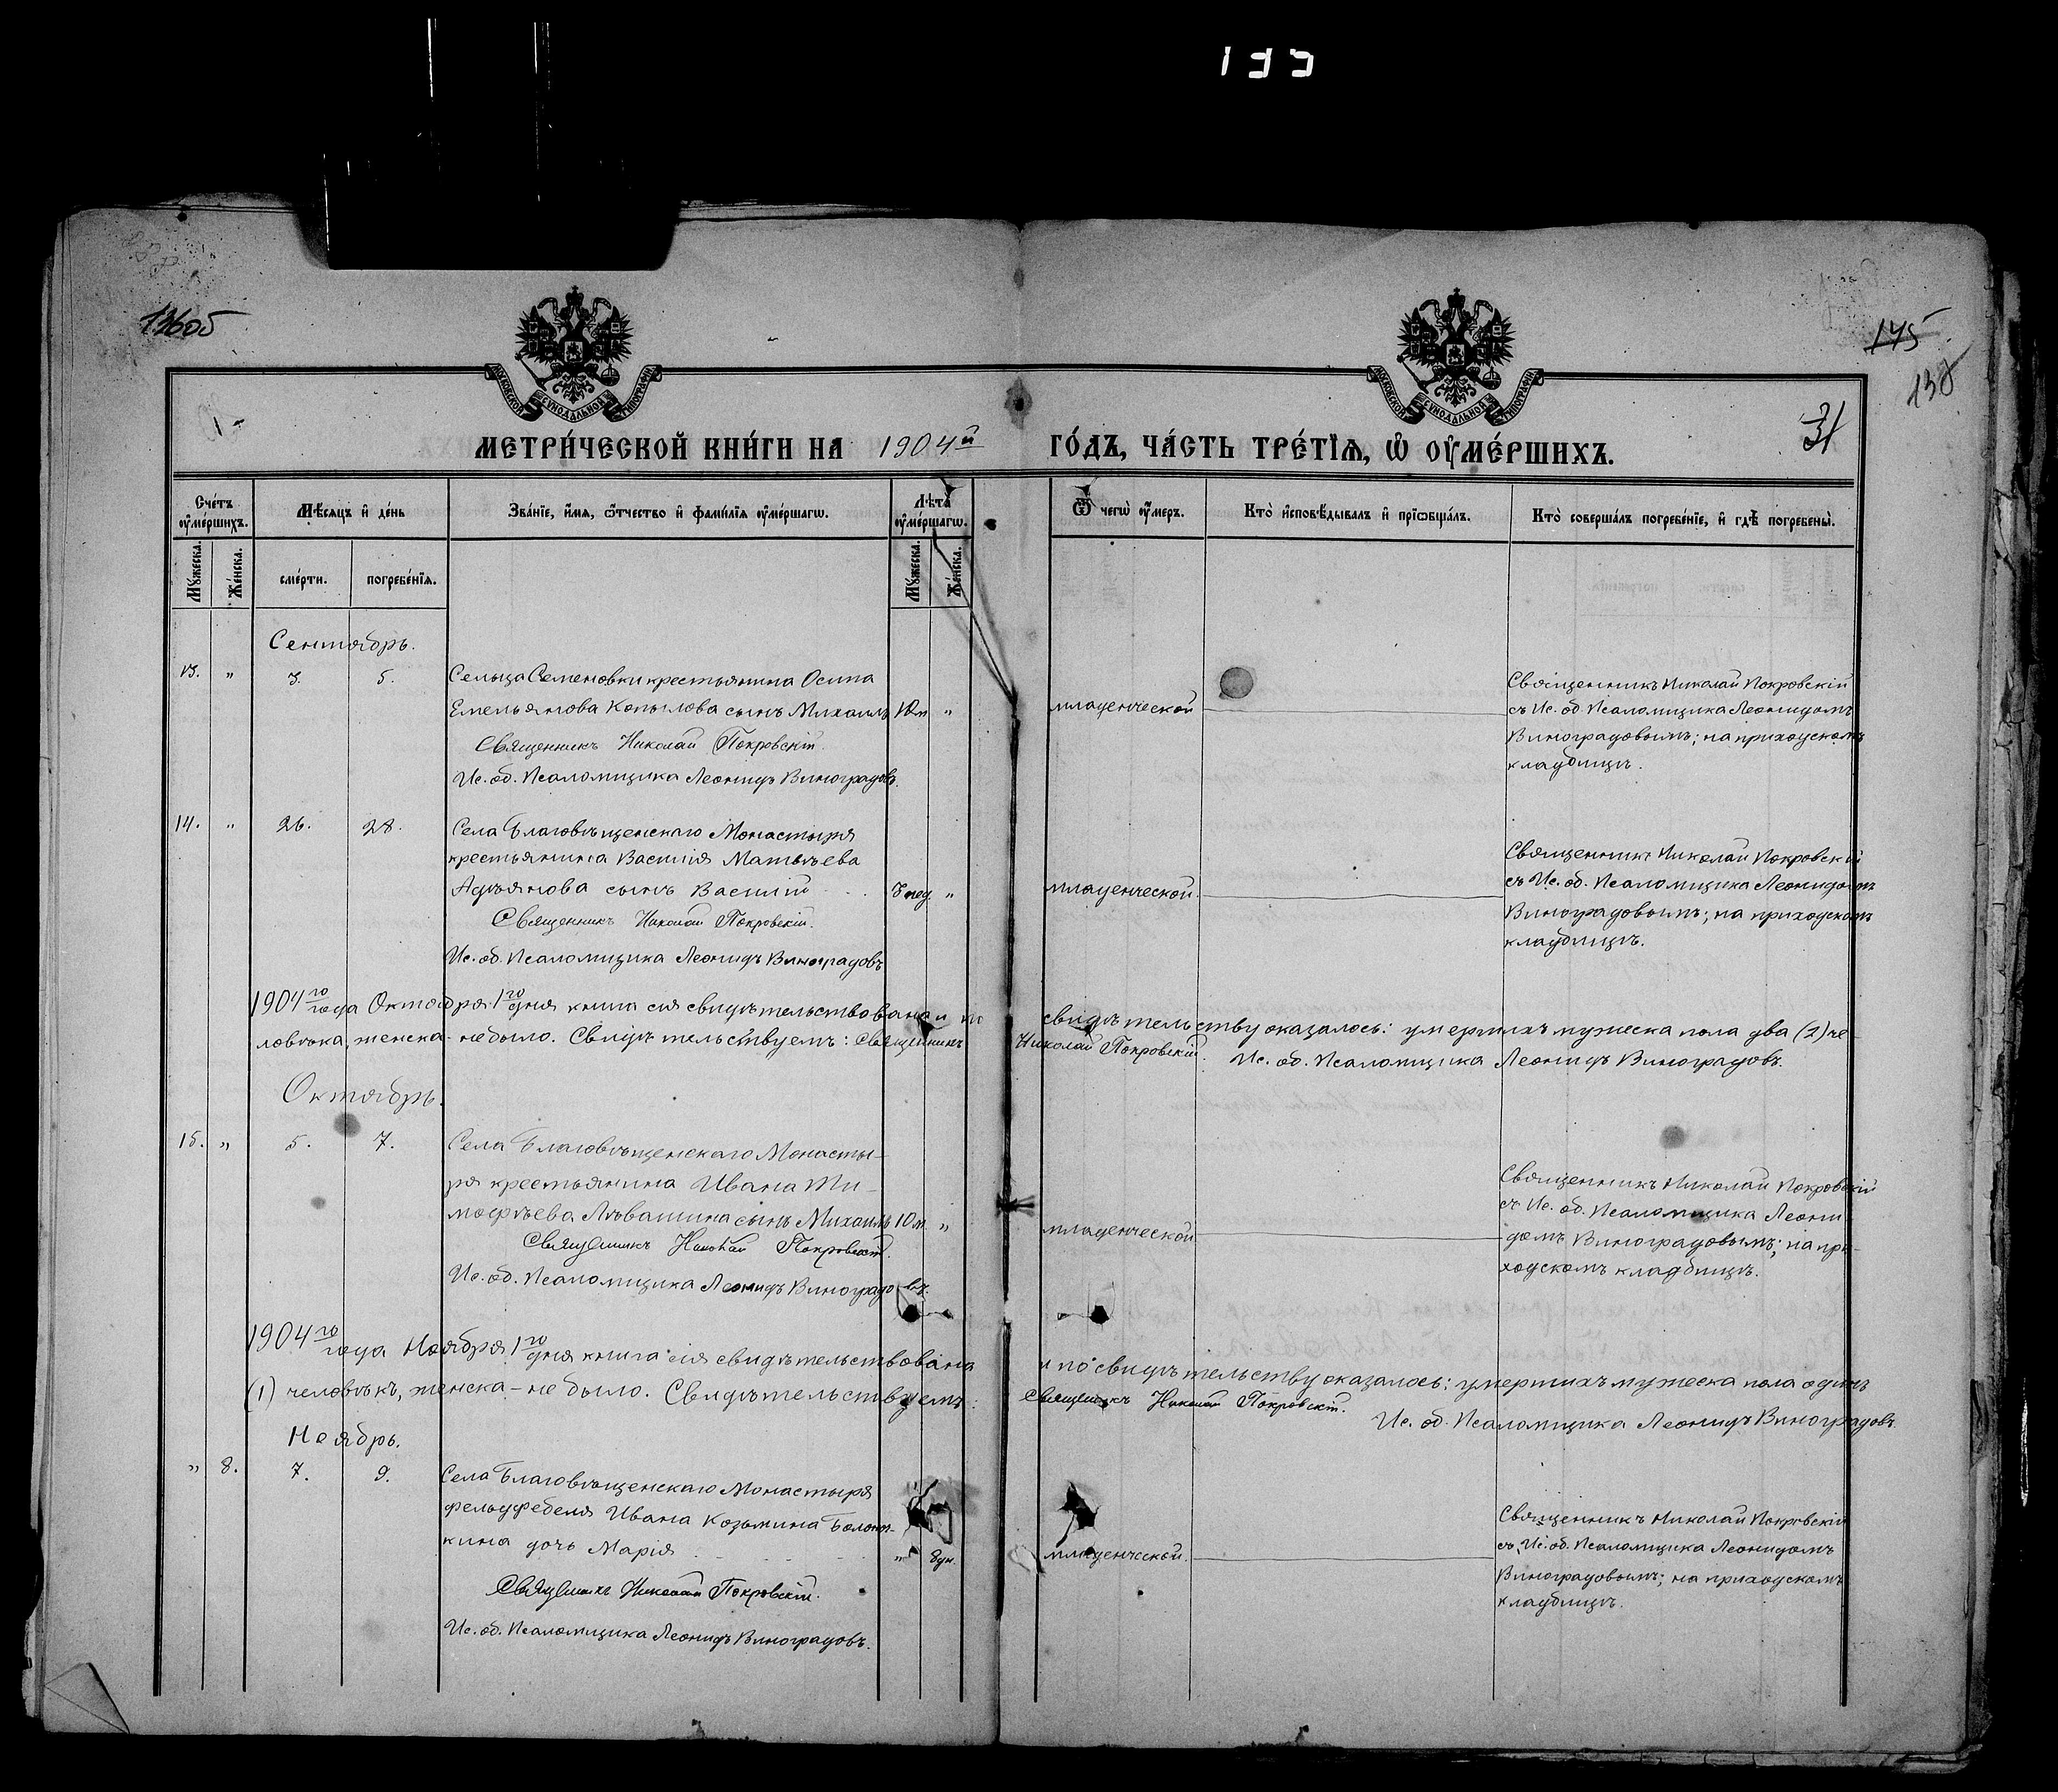 13605
145
138
31
МЕТРИ́ЧЕСКОЙ КНИ́ГИ НА 1904й ГО́ДЪ, ЧА́СТЬ ТРЕ́ТЇѦ, Ѽ ОУ҆МЕ́РШИХЪ.
МОСКОВСКОЙ СѴНОДАЛЬНОЙ ТИПОГРАФІИ
МОСКОВСКОЙ СѴНОДАЛЬНОЙ ТИПОГРАФІИ
Сче́тъ оу҆ме́ршихъ.
Мѣ́сяцъ и҆ де́нь
Зва́нїе, и҆́мя, ѻ҆́тчество и҆ фами́лїя оу҆ме́ршагѡ.
Лѣ́та оу҆ме́ршагѡ.
Ѿ чегѡ̀ оу҆́меръ.
Кто̀ и҆сповѣ́дывалъ и҆ прїѡбща́лъ.
Кто̀ соверша́лъ погребе́нїе, и҆ гдѣ̀ погребены̀.
Мꙋ́жеска.
Же́нска.
сме́рти.
погребе́нїя.
Мꙋ́жеска.
Же́нска.
Сентябрь.
13. " 3. 5. Сельца Семеновки крестьянина Осипа
Емельянова Копылова сынъ Михаилъ "
Священникъ Николай Покровскій.
Ис. об. Псаломщика Леонидъ Виноградовъ.
младенческой
Священникъ Николай Покровскій
съ Ис. об. Псаломщика Леонидомъ
Виноградовымъ; на приходскомъ
кладбищѣ.
14. " 26. 28. Села Благовѣщенскаго Монастыря
крестьянина Василія Матвѣева
Адріянова сынъ Василій нед. "
Священникъ Николай Покровскій.
Ис. об. Псаломщика Леонидъ Виноградовъ
младенческой.
Священникъ Николай Покровскій
съ Ис. об. Псаломщика Леонидомъ
Виноградовымъ; на приходскомъ
кладбищѣ.
1904го года Октября 1го дня книга сія свидѣтельствована и по свидѣтельству оказалось: умершихъ мужеска пола два (2) че-
ловѣка, женска - не было. Свидѣтельствуемъ: Священникъ Николай Покровскій. Ис. об. Псаломщика Леонидъ Виноградовъ.
Октябрь.
15. " 5. 7. Села Благовѣщенскаго Монасты-
ря крестьянина Ивана Ти-
мофѣева Лѣвашина сынъ Михаилъ 10 м. "
Священникъ Николай Покровскій
Ис. об. Псаломщика Леонидъ Виноградовъ.
младенческой
Священникъ Николай Покровскій
съ Ис. об. Псаломщика Леони-
домъ Виноградовымъ; на при-
ходскомъ кладбищѣ.
1904го года Ноября 1го дня книга сія свидѣтельствована и по свидѣтельству оказалось: умершихъ мужеска пола одинъ
(1) человѣкъ, женска - не было. Свидѣтельствуемъ: Священникъ Николай Покровскій.
Ис. об. Псаломщика Леонидъ Виноградовъ.
Ноябрь.
" 8. 7. 9. Села Благовѣщенскаго Монастыря
фельдфебеля Ивана Козьмина
дочь Марія "
Священникъ Николай Покровскій.
Ис. об. Псаломщика Леонидъ Виноградовъ.
младенческой.
Священникъ Николай Покровскій
съ Ис. об. Псаломщика Леонидомъ
Виноградовымъ; на приходскомъ
кладбищѣ.